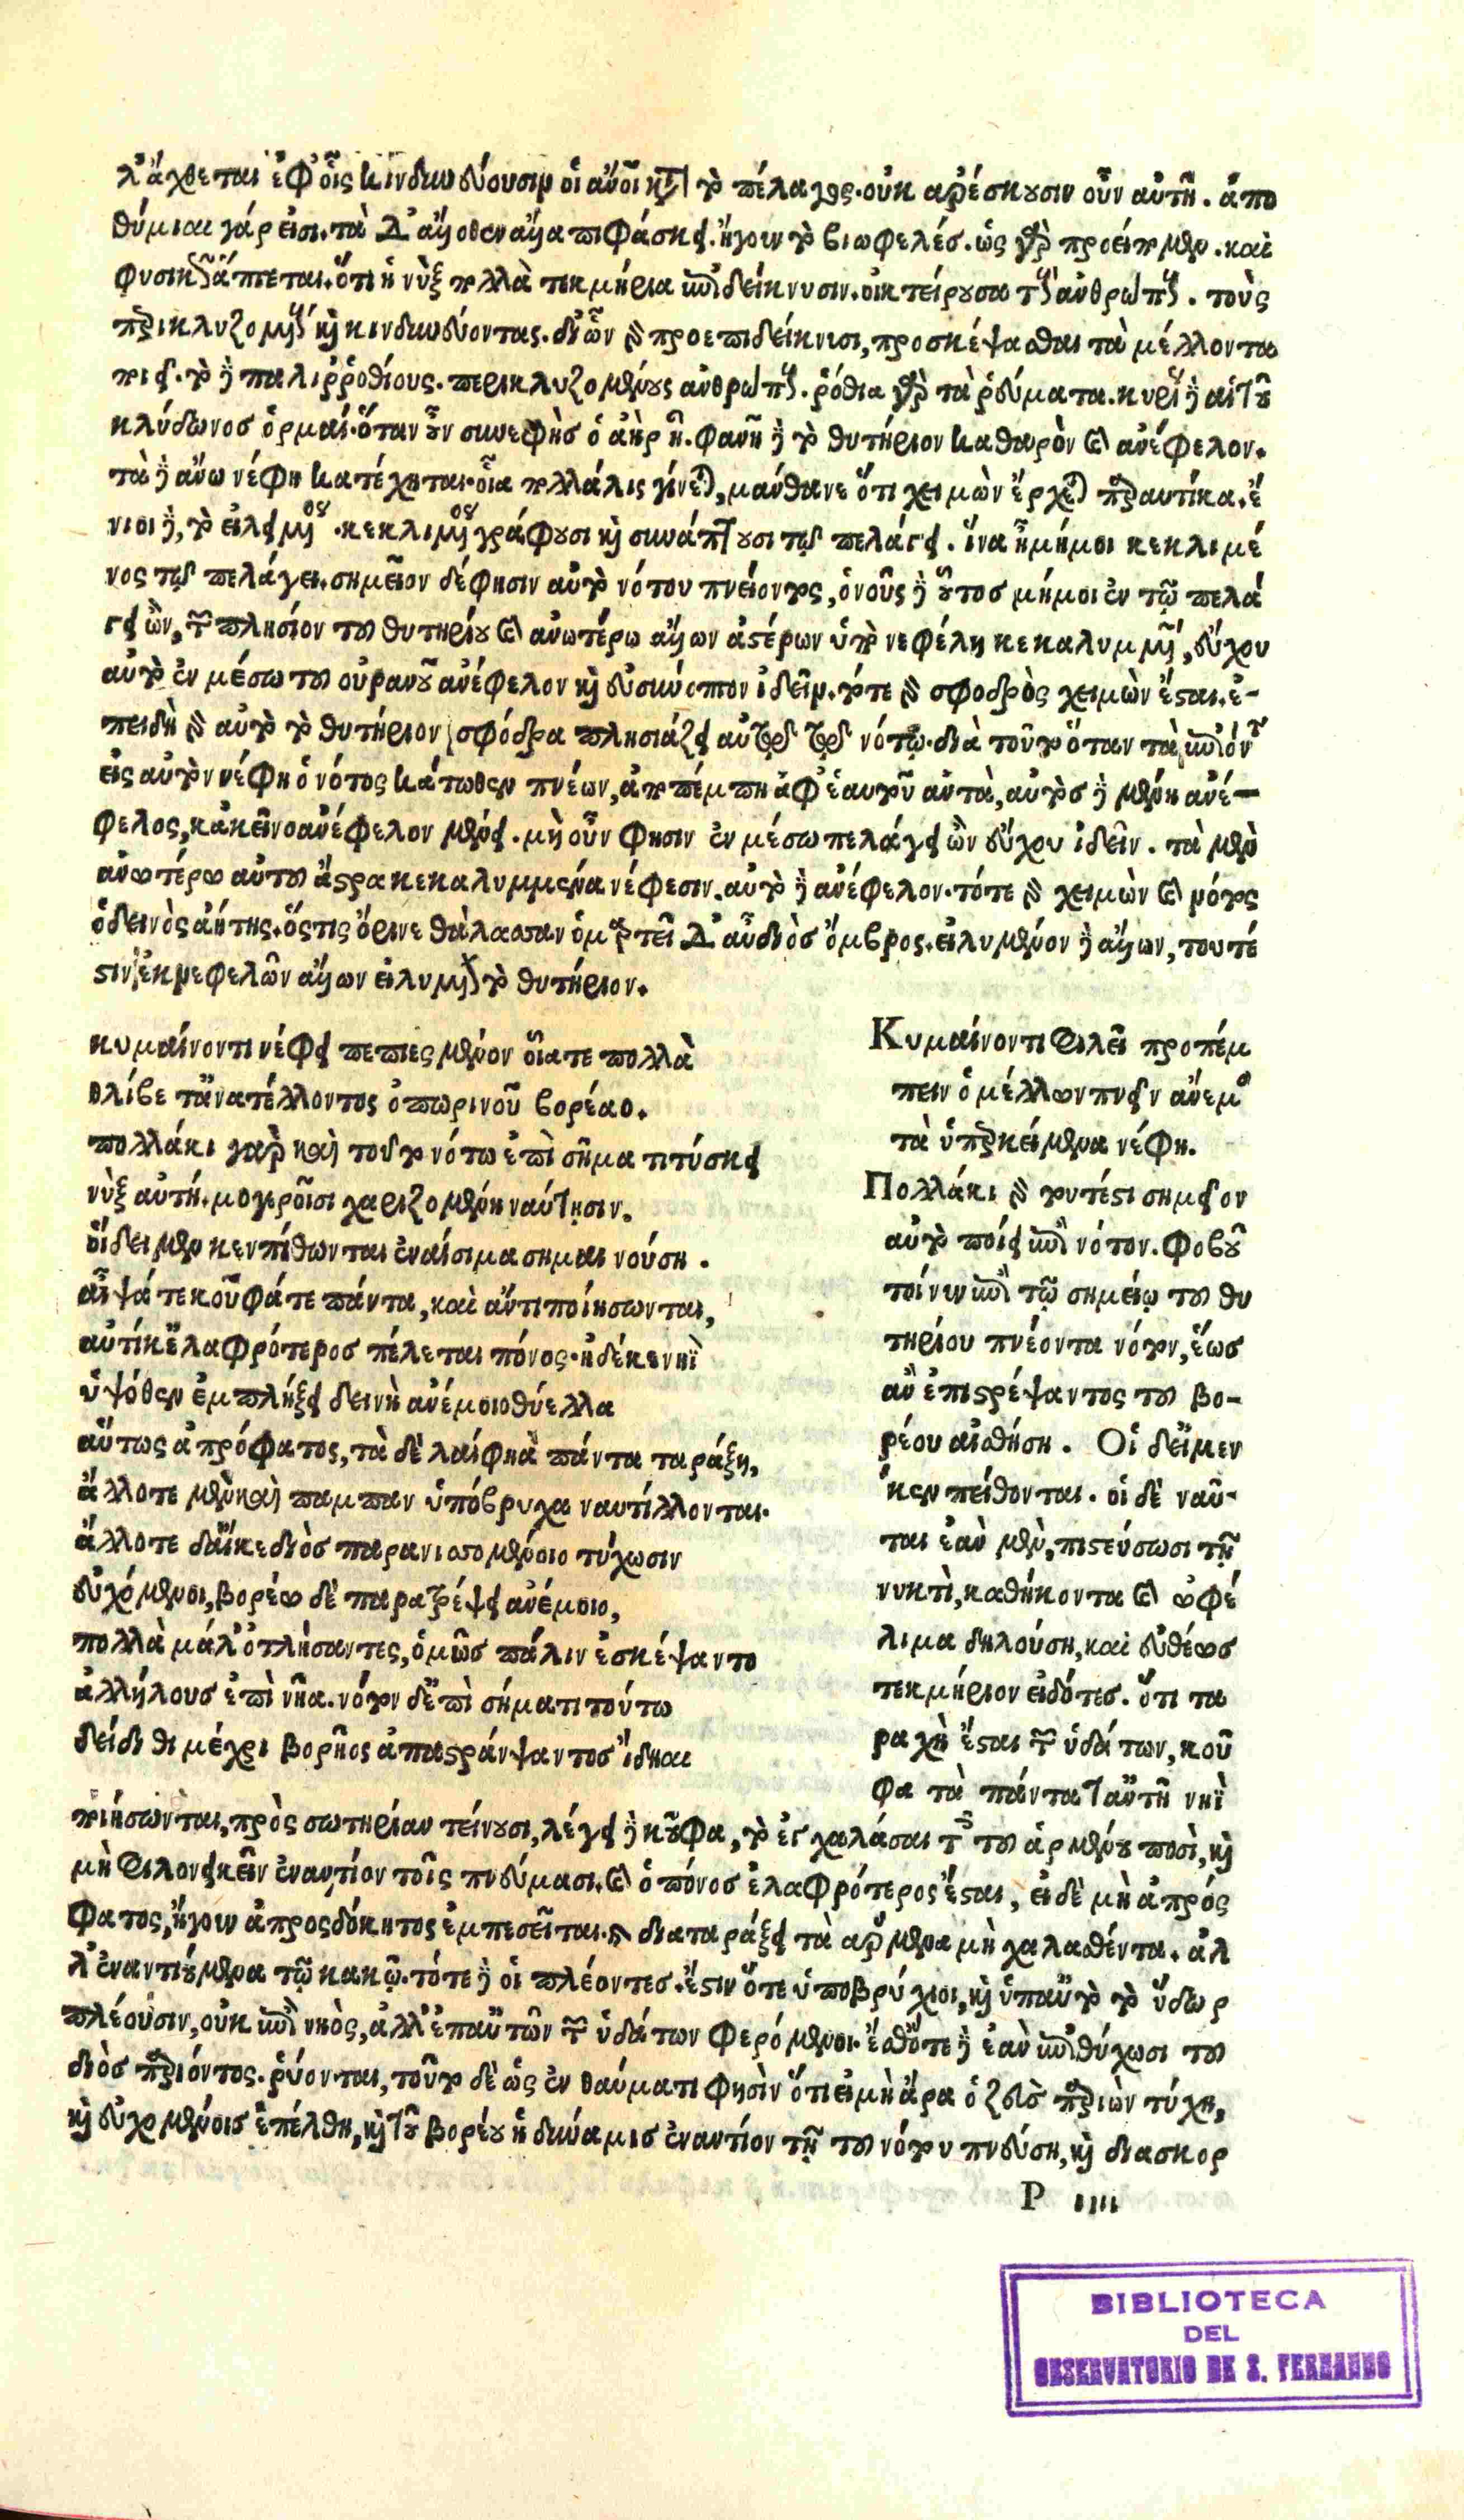 λ' ἄχθεται ἐφ' οἷς κινδυνεύουσιν οἱ ἄνοι κτ τὸ πέλαγος. οὐκ ἀρέσκουσιν οὖν αὐτῆ. ἀπο
θύμιαι γάρ εἰσι. τὰ δ' ἄλλοθεν ἄλλα πιφάσκει. ἤγουν τὸ βιωφελές. ὡς γὰρ προείπομεν. καὶ
φυσικῶς ἅπτεται. ὅτι ἡ νὺξ πολλὰ τεκμήρια ἐπιδείκνυσιν. οἰκτείρουσα τοὺς ἀνθρώπους. τοὺς
περικλυζομένους καὶ κινδυνεύοντας. δι' ὧν γὰρ προεπιδείκνυσι, προσκέψασθαι τὰ μέλλοντα
ποιεῖ. τὸ δὲ παλιῤῥοθίους. περικλυζομένους ἀνθρώπους. ῥόθια γὰρ τὰ ῥεύματα. κυρίως δὲ αἱ τοῦ
κλύδωνος ὁρμαί. ὅταν οὖν συνεφὴς ὁ ἀὴρ ἦ. φανῆ δὲ τὸ θυτήριον καθαρὸν καὶ ἀνέφελον.
τὰ δὲ ἄνω νέφη κατέχηται. οἷα πολλάκις γίνεται, μάνθανε ὅτι χειμὼν ἔρχεται παραυτίκα. ἔ
νιοι δὲ, τὸ εἰλειμένος. κεκλιμένος γράφουσι καὶ συνάπτουσι τῷ πελάγει. ἵνα ἦ μή μοι κεκλιμέ
νος τῷ πελάγει. σημεῖον δέ φησιν αὐτὸ νότου πνείοντος, ὁ νοῦς δὲ οὗτος μή μοι ἐν τῷ πελά
γει ὢν, τῶν πλησίον τοῦ θυτηρίου καὶ ἀνωτέρω ἄλλων ἀστέρων ὑπὸ νεφέλη κεκαλυμμένων, εὔχου
αὐτὸ ἐν μέσω τοῦ οὐρανοῦ ἀνέφελον καὶ εὐσύνοπτον ἰδεῖν. τότε γὰρ σφοδρὸς χειμὼν ἔσται. ἐ-
πειδὴ γὰρ αὐτὸ τὸ θυτήριον σφόδρα πλησιάζει αὐτῷ τῷ νότῳ. διὰ τοῦτο ὅταν τὰ ἐπιόντα
εἰς αὐτὸν νέφη ὁ νότος κάτωθεν πνέων, ἀποπέμπη ἀφ' ἑαυτοῦ αὐτὰ, αὐτὸς δὲ μένη ἀνέ-
φελος, κἀκεῖνο ἀνέφελον μένει. μὴ οὖν φησιν ἐν μέσω πελάγει ὢν εὔχου ἰδεῖν. τὰ μὲν
ἀνωτέρω αὐτοῦ ἄστρα κεκαλυμμένα νέφεσιν. αὐτὸ δὲ ἀνέφελον. τότε γὰρ χειμὼν καὶ νότος
ὁ δεινὸς ἀήτης. ὅστις ὄρινε θάλασσαν ὁμαρτεῖ δ' αὖ διὸς ὄμβρος. εἰλυμένον δὲ ἄλλων, τουτέ
στιν ἐκ νεφελῶν ἄλλων εἰλυμένων τὸ θυτήριον.
κυμαίνοντι νέφει πεπιεσμένον οἷά τε πολλὰ
θλίβετ' ἀνατέλλοντος ὀπωρινοῦ βορέαο.
πολλάκι γὰρ καὶ τοῦτο νότω ἐπὶ σῆμα τιτύσκει
νὺξ αὐτή. μογεροῖσι χαριζομένη ναύτησιν.
οἱ δ' εἰ μέν κεν πίθωνται ἐναίσιμα σημαινούση.
αἶψά τε κοῦφά τε πάντα, καὶ ἄντι ποιήσωνται,
αὐτίκ' ἐλαφρότερος πέλεται πόνος. ἠδέ κεν νηῒ
ὑψόθεν ἐμπλήξει δεινὴ ἀνέμοιο θύελλα
αὕτως ἀπρόφατος, τὰ δὲ λαίφηα πάντα ταράξη,
ἄλλοτε μὲν καὶ παμπαν ὑπόβρυχα ναυτίλλονται.
ἄλλοτε δ' αἴ κε διὸς παρανισσομένοιο τύχωσιν
εὐχόμενοι, βορέω δὲ παρατρέψει ἀνέμοιο,
πολλὰ μάλ' ὀτλήσαντες, ὁμῶς πάλιν ἐσκέψαντο
ἀλλήλους ἐπὶ νῆα. νότον δ' ἐπὶ σήματι τούτω
δείδιθι μέχρι βορῆος ἀπαστράψαντος ἴδηαι
Κυμαίνοντι φιλεῖ προπέμ
πειν ὁ μέλλων πνεῖν ἄνεμος
τὰ ὑποκείμενα νέφη.
Πολλάκι γὰρ τουτέστι σημεῖον
αὐτὸ ποιεῖ ἐπὶ νότον. φοβοῦ
τοίνυν ἐπὶ τῷ σημείῳ τοῦ θυ
τηρίου πνέοντα νότον, ἕως
ἂν ἐπιστρέψαντος τοῦ βο-
ρέου αἰσθήση. Οἱ δ' εἰ μέν
κεν πείθονται. οἱ δὲ ναῦ-
ται ἐὰν μὲν, πιστεύσωσι τῇ
νυκτὶ, καθήκοντα καὶ ὠφέ
λιμα δηλούση, καὶ εὐθέως
τεκμήριον εἰδότες. ὅτι τα
ραχὴ ἔσται τῶν ὑδάτων, κοῦ
φα τὰ πάντα ταύτη νηῒ
ποιήσωνται, πρὸς σωτηρίαν τείνουσι, λέγει δὲ κοῦφα, τὸ ἐγχαλάσαι τοὺς τοῦ ἁρμένου ποσὶ, καὶ
μὴ φιλονεικεῖν ἐναντίον τοῖς πνεύμασι. καὶ ὁ πόνος ἐλαφρότερος ἔσται, εἰ δὲ μὴ ἀπρός
φατος, ἤγουν ἀπροσδόκητος ἐμπεσεῖται. καὶ διαταράξει τὰ ἄρμενα μὴ χαλασθέντα. ἀλ
λ' ἐναντιούμενα τῷ κακῷ. τότε δὲ οἱ πλέοντες. ἔστιν ὅτε ὑποβρύχιοι, καὶ ὑπ' αὐτὸ τὸ ὕδωρ
πλέουσιν, οὐκ ἐπὶ νηὸς, ἀλλ' ἐπ' αὐτῶν τῶν ὑδάτων φερόμενοι. ἔσθ' ὅτε δὲ ἐὰν ἐπιτύχωσι τοῦ
διὸς παριόντος. ῥύονται, τοῦτο δὲ ὡς ἐν θαύματι φησὶν ὅτι εἰ μὴ ἄρα ὁ ζεὺς παριὼν τύχη,
καὶ εὐχομένοις ἐπέλθη, καὶ τοῦ βορέου ἡ δύναμις ἐναντίον τῇ τοῦ νότου πνεύση, καὶ διασκορ
P iiii
BIBLIOTECA
DEL
OBSERVATORIO DE S. FERNANDO